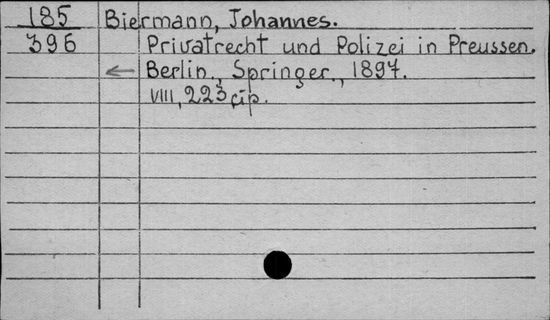 185 Biermann, Johannes.
396 Privatrecht und Polizei in Preussen.
← Berlin., Springer., 1897.
VIII, 223